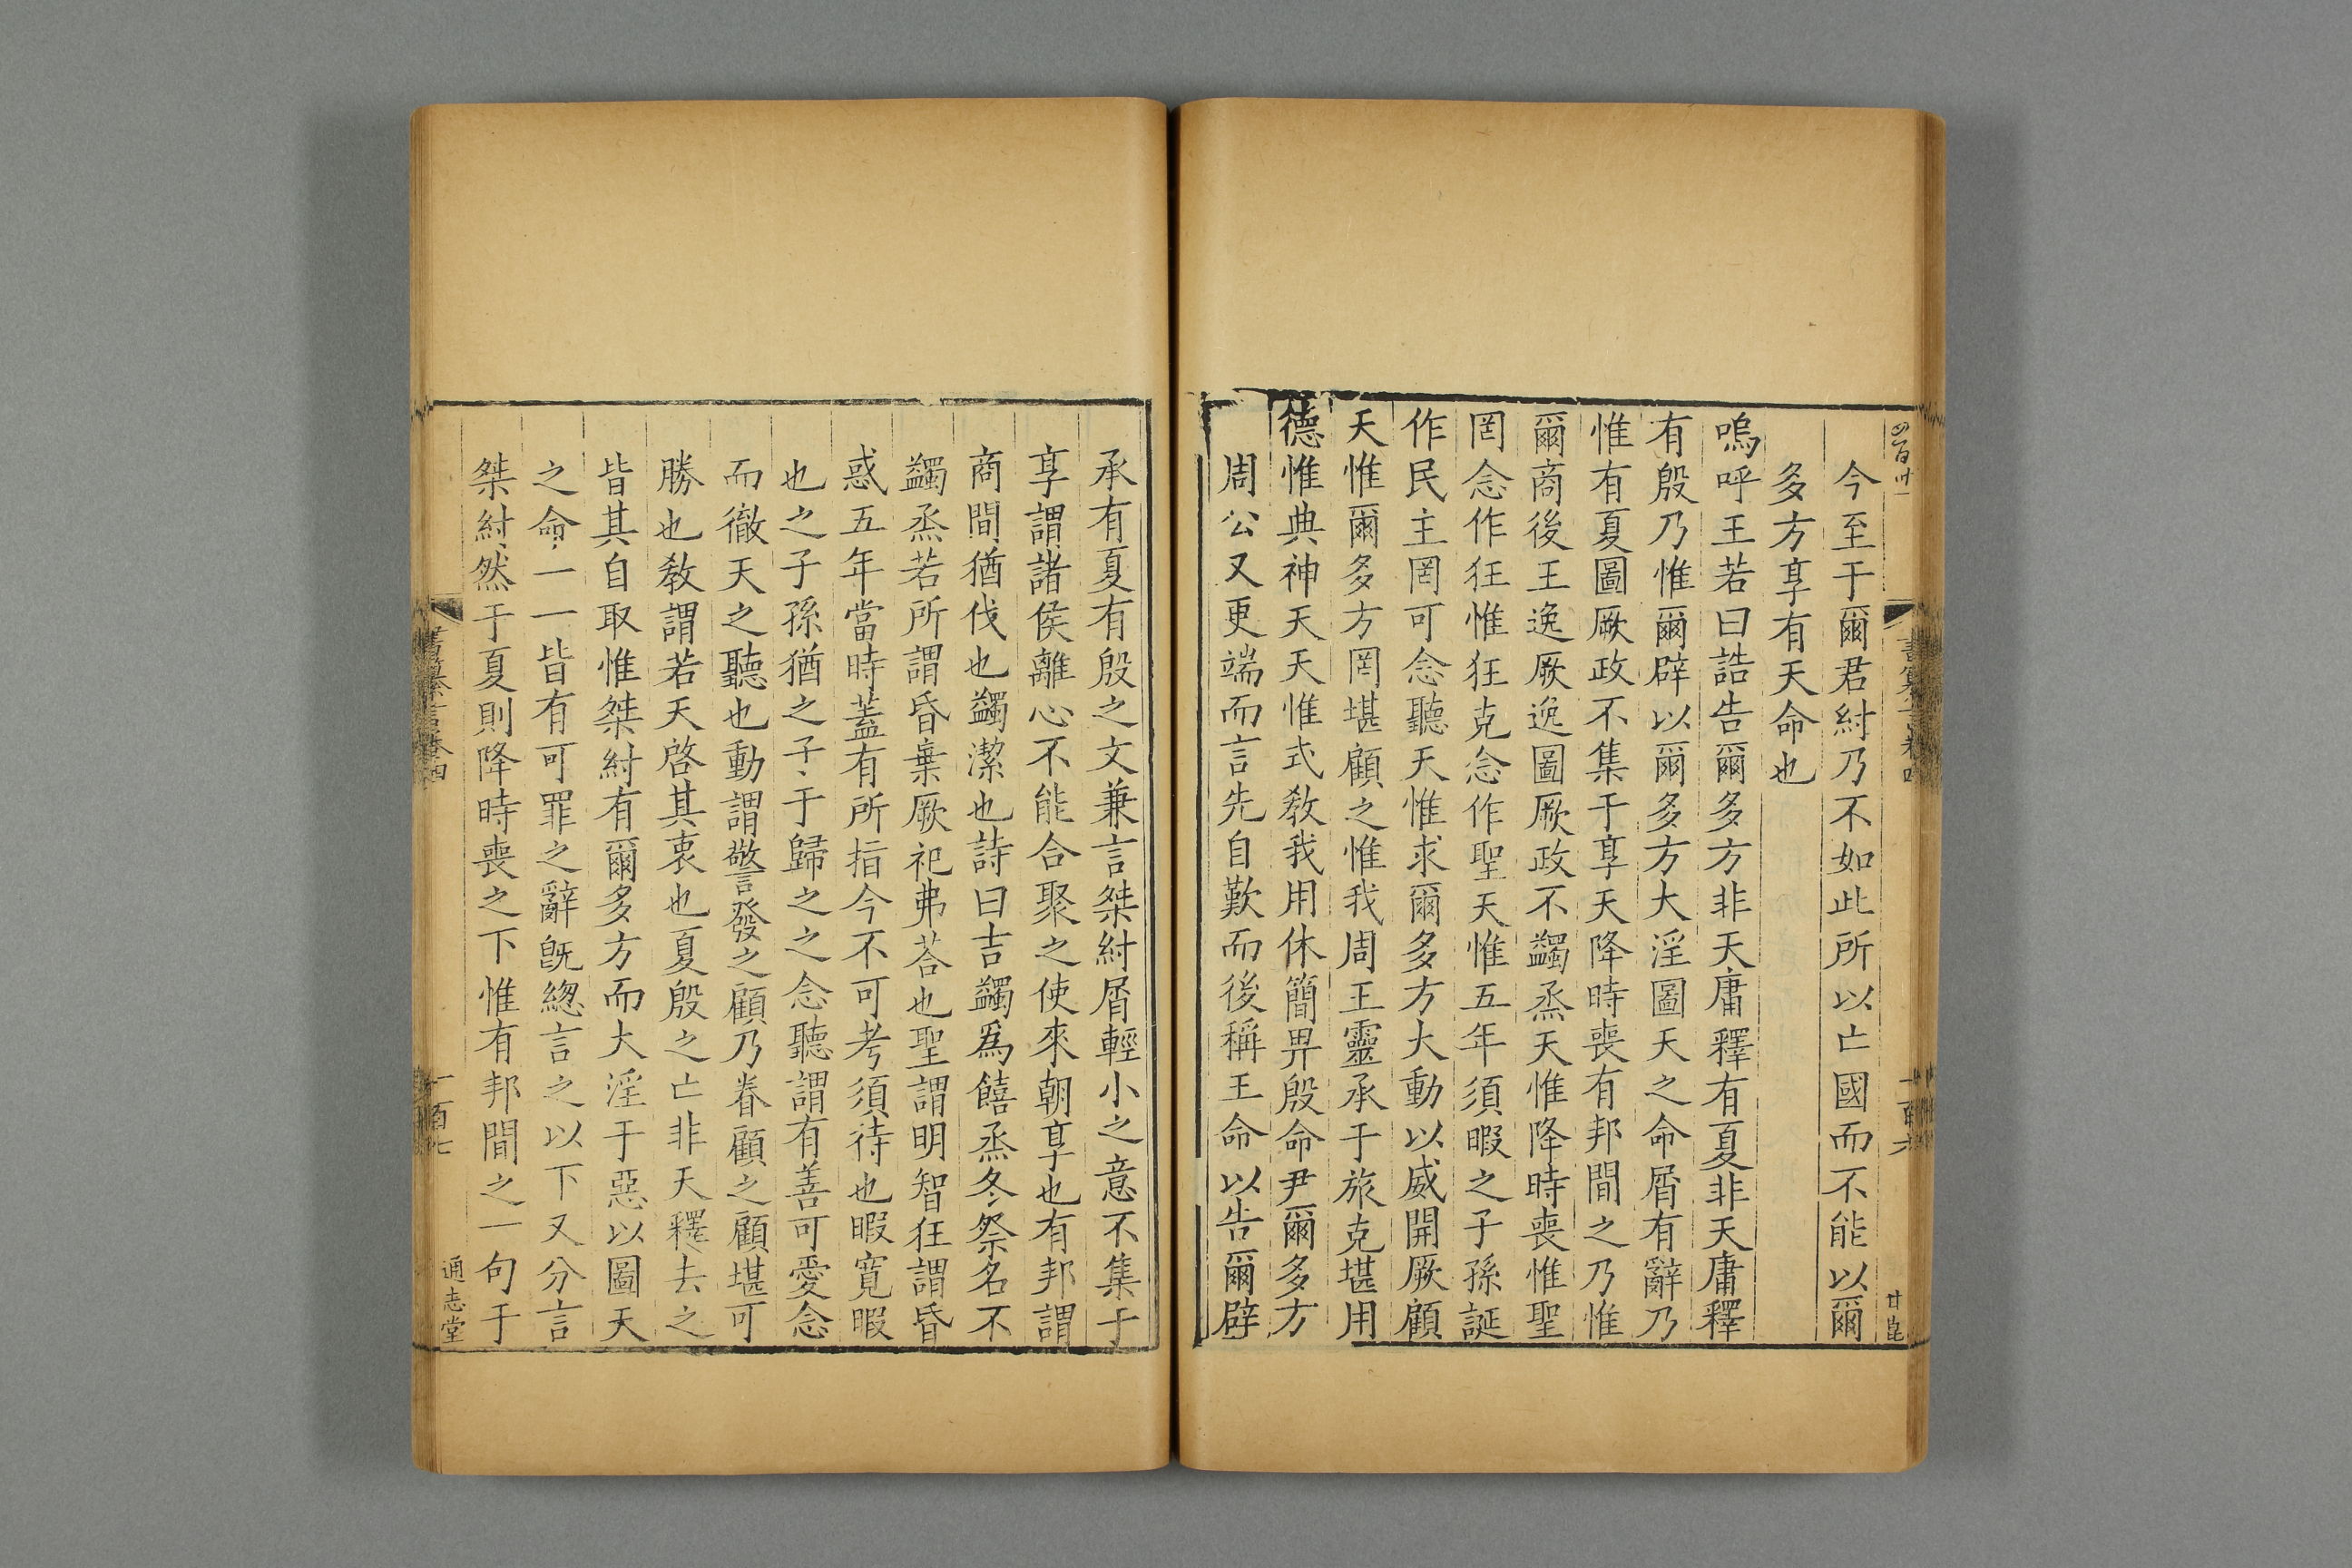 今至于爾君紂乃不如此所以亡國而不能以爾
多方享有天命也
嗚呼王若曰誥告爾多方非天庸釋有夏非天庸釋
有殷乃惟爾辟以爾多方大淫圖天之命屑有辭乃
惟有夏圖厥政不集于享天降時喪有邦間之乃惟
爾商後王逸厥逸圖厥政不蠲烝天惟降時喪惟聖
罔念作狂惟狂克念作聖天惟五年須暇之子孫誕
作民主罔可念聽天惟求爾多方大動以威開厥顧
天惟爾多方罔堪顧之惟我周王靈承于旅克堪用
德惟典神天天惟式教我用休簡畀殷命尹爾多方
周公又更端而言先自歎而後稱王命以告爾辟
承有夏有殷之文兼言桀紂屑輕小之意不集于
享謂諸侯離心不能合聚之使來朝享也有邦謂
商間猶伐也蠲潔也詩曰吉蠲爲饎烝冬祭名不
蠲烝若所謂昏棄厥祀弗荅也聖謂明智狂謂昏
惑五年當時蓋有所指今不可考須待也暇寛暇
也之子孫猶之子于歸之之念聽謂有善可愛念
而徹天之聽也動謂警發之顧乃眷顧之顧堪可
勝也教謂若天啓其衷也夏殷之亡非天釋去之
皆其自取惟桀紂有爾多方而大淫于惡以圖天
之命一一皆有可罪之辭旣總言之以下又分言
桀紂然于夏則降時喪之下惟有邦間之一句于
書纂言卷四
二百七
通志堂